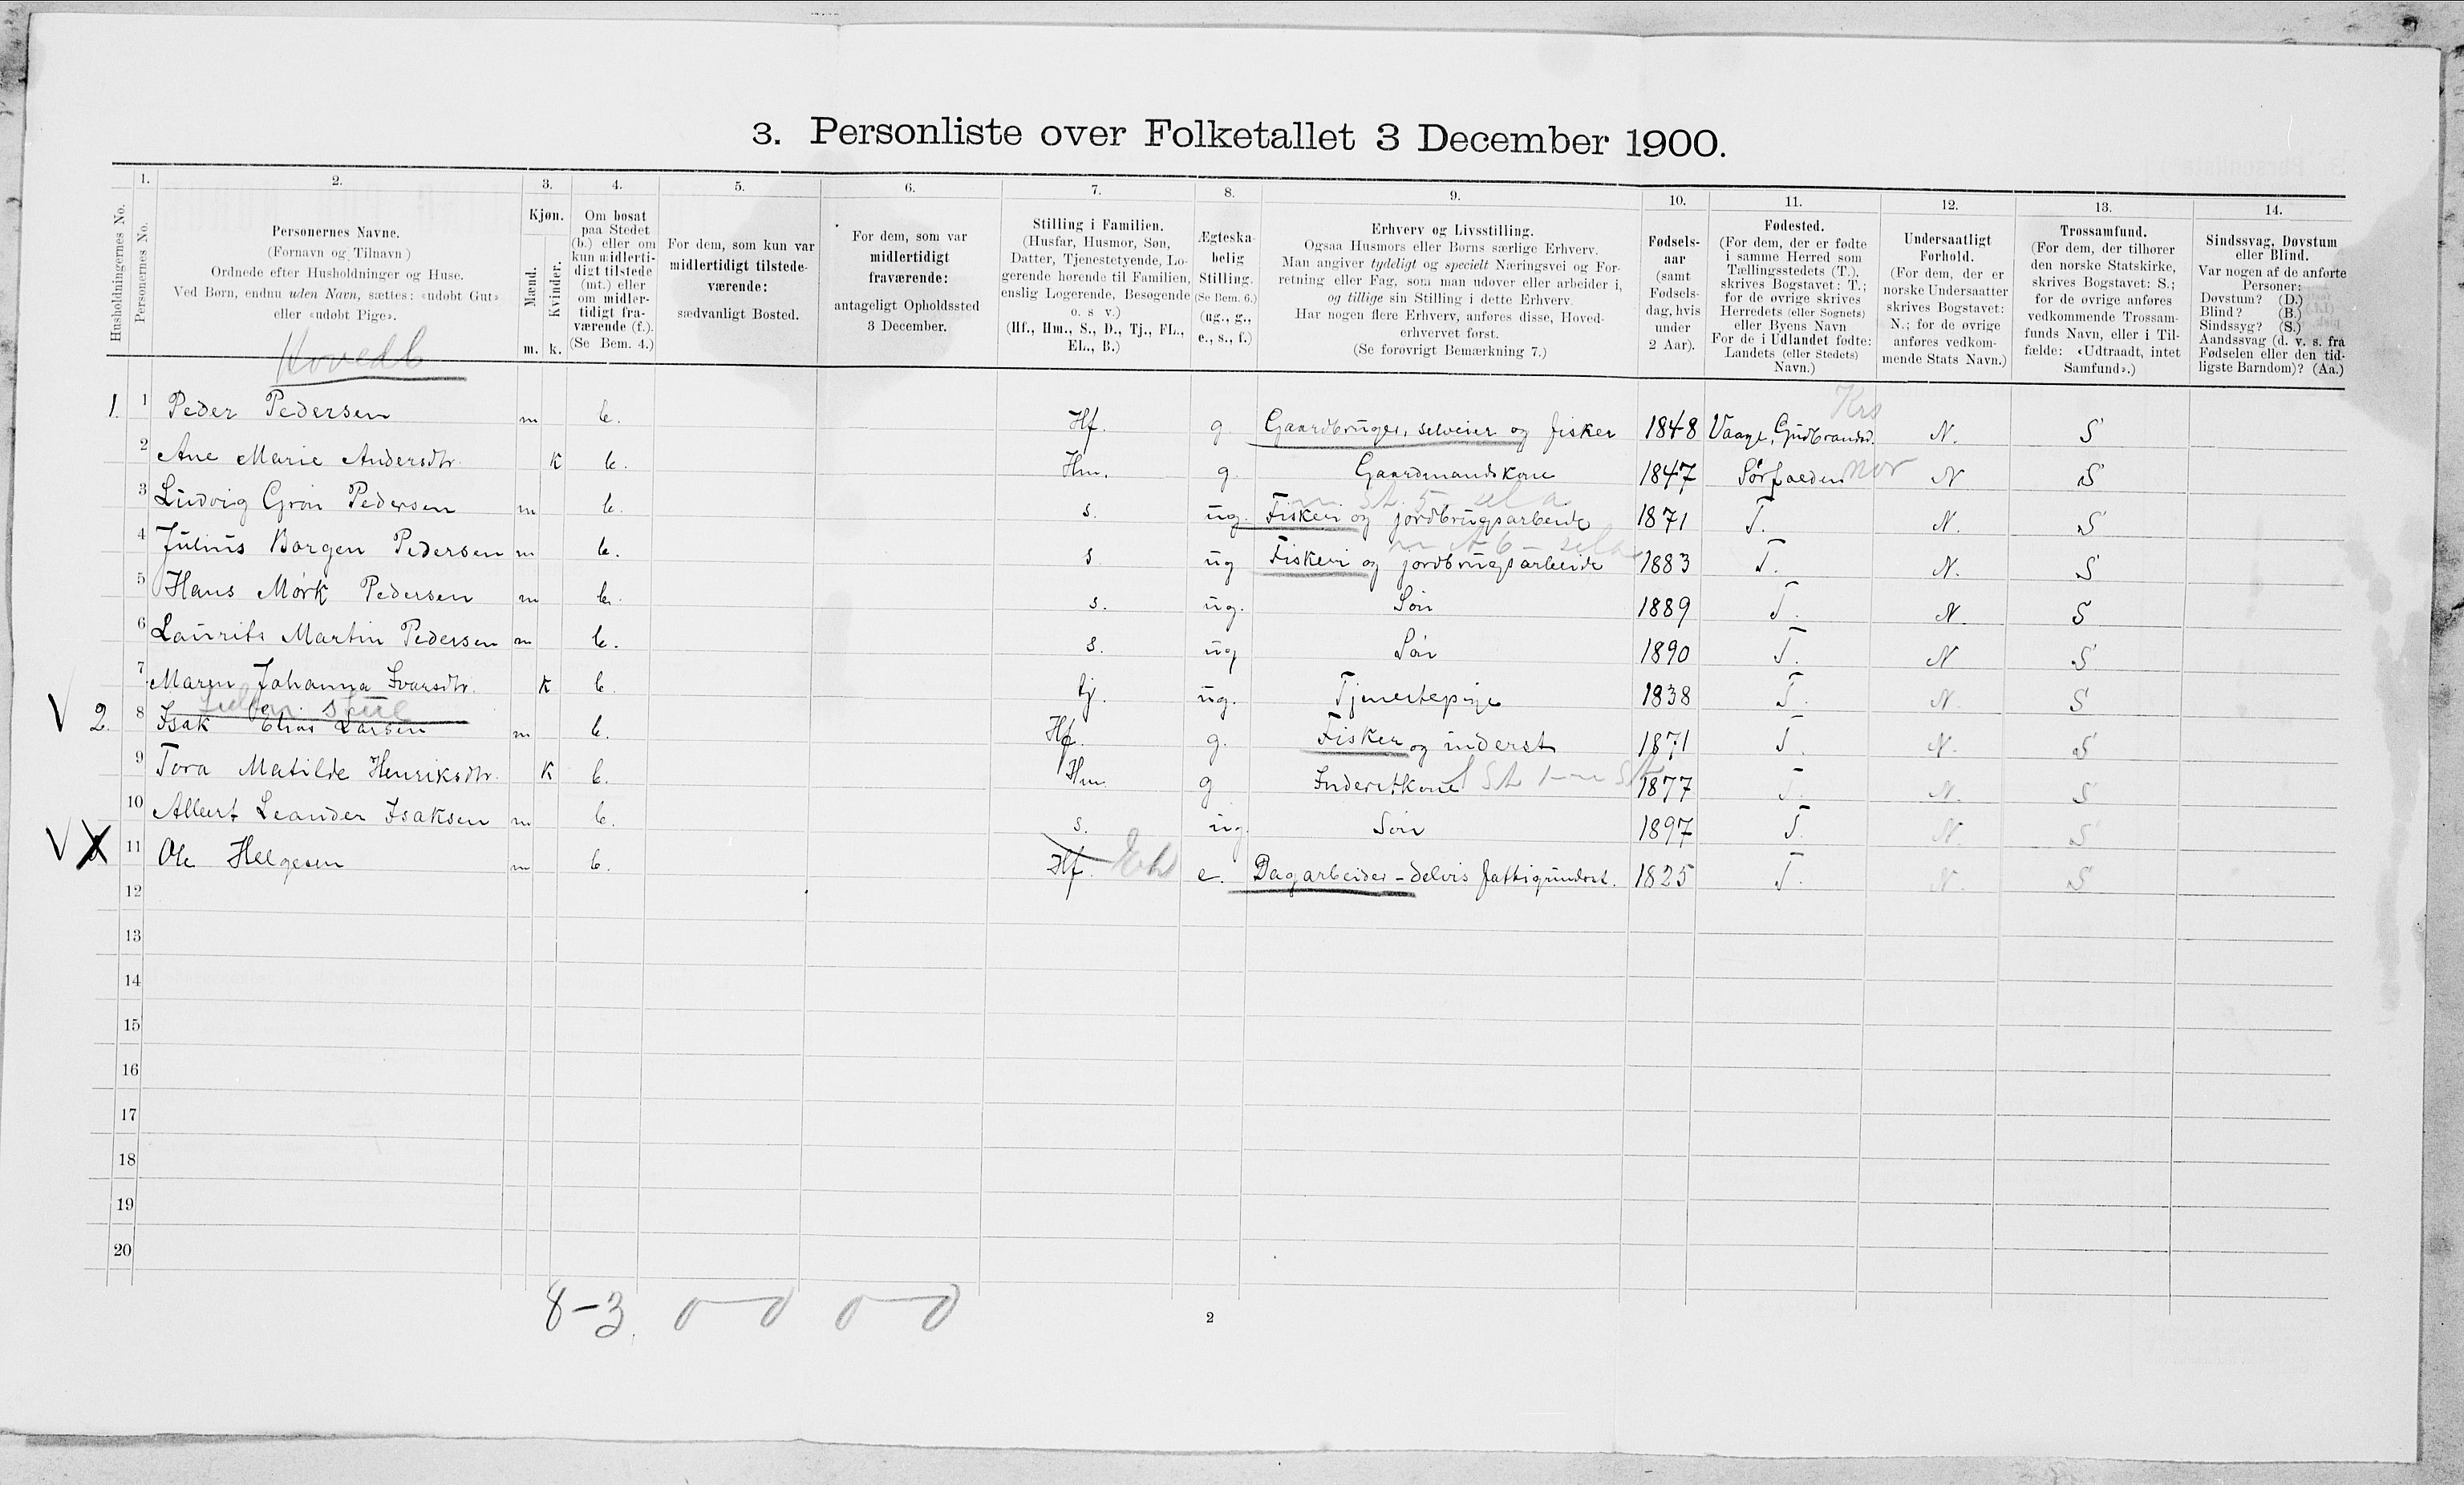 3. Personliste over Folketallet 3 December 1900.
1. 2. 3. 4. 5. 6. 7. 8. 9. 10. 11. 12. 13. 14.
Husholdningernes No.
Personernes No.
Personernes Navne.
(Fornavn og Tilnavn)
Ordnede efter Husholdninger og Huse.
Ved Børn, endnu uden Navn, sættes: «udøbt Gut»
eller «udøbt Pige».
Kjøn.
Mænd.
Kvinder.
m. k.
Om bosat
paa Stedet
(b.) eller om
kun midlerti-
digt tilstede
(mt.) eller
om midler-
tidigt fra-
værende (f.).
(Se Bem. 4.)
For dem, som kun var
midlertidigt tilstede-
værende:
sædvanligt Bosted.
For dem, som var
midlertidigt
fraværende:
antageligt Opholdssted
3 December.
Stilling i Familien.
(Husfar, Husmor, Søn,
Datter, Tjenestetyende, Lo-
gerende hørende til Familien,
enslig Logerende, Besøgende
o. s v.)
(Hf., Hm., S., D., Tj., FL.,
EL., B.)
Ægteska-
belig
Stilling.
(Se Bem. 6.)
(ug., g.,
e., s., f.)
Erhverv og Livsstilling.
Ogsaa Husmors eller Børns særlige Erhverv.
Man angiver tydeligt og specielt Næringsvei og For-
retning eller Fag, som man udøver eller arbeider i,
og tillige sin Stilling i dette Erhverv.
Har nogen flere Erhverv, anføres disse, Hoved-
erhvervet først.
(Se forøvrigt Bemærkning 7.)
Fødsels-
aar
(samt
Fødsels-
dag, hvis
under
2 Aar).
Fødested.
(For dem, der er fødte
i samme Herred som
Tællingsstedets (T.),
skrives Bogstavet: T.;
for de øvrige skrives
Herredets (eller Sognets)
eller Byens Navn
For de i Udlandet fødte:
Landets (eller Stedets)
Navn.)
Undersaatligt
Forhold.
(For dem, der er
norske Undersaatter
skrives Bogstavet:
N.; for de øvrige
anføres vedkom-
mende Stats Navn.)
Trossamfund.
(For dem, der tilhører
den norske Statskirke,
skrives Bogstavet: S.;
for de øvrige anføres
vedkommende Trossam-
funds Navn, eller i Til-
fælde: «Udtraadt, intet
Samfund».)
Sindssvag, Døvstum
eller Blind.
Var nogen af de anførte
Personer:
Døvstum? (D.)
Blind? (B.)
Sindssyg? (S.)
Aandssvag (d. v. s. fra
Fødselen eller den tid-
ligste Barndom)? (Aa.)
Hovedb
Krs
1. 1 Peder Pedersen m b. Hf. g. Gaardbruger, selveier og fisker 1848 Vaage, Gudbrandsd. N. S
2 Ane Marie Andersdtr. K b. Hm. g. Gaardmandskone 1847 Sørfolden Nor N S
3 Ludvig Grøn Pedersen m b. s. ug. Fiskeri og jordbrugsarbeide 1871 T. N. S
4 Julius Borgen Pedersen m b. s ug Fiskeri og jordbrugsarbeide 1883 T. N. S
5 Hans Mørk Pedersen m b. s. ug. Søn 1889 T. N. S
6 Laurits Martin Pedersen m b. s. ug Søn 1890 T. N S
7 Maren Johanna Ivarsdtr. K b tj. ug. Tjenestepige 1838 T. N S
V 2. 8 Isak Elias Larsen m b. Hf. g. Fisker og inderst 1871 T. N. S
9 Tora Matilde Henriksdtr. K b. Hm. g Inderstkone 1877 T. N. S
10 Albert Leander Isaksen m b. s. ug. Søn 1897 T. N S
V 11 Ole Helgesen m b. Hf. e. Dagarbeider - delvis fattigunderst. 1825 T. N. S
12
13
14
15
16
17
18
19
20
8-3. 0—0 0—0
2